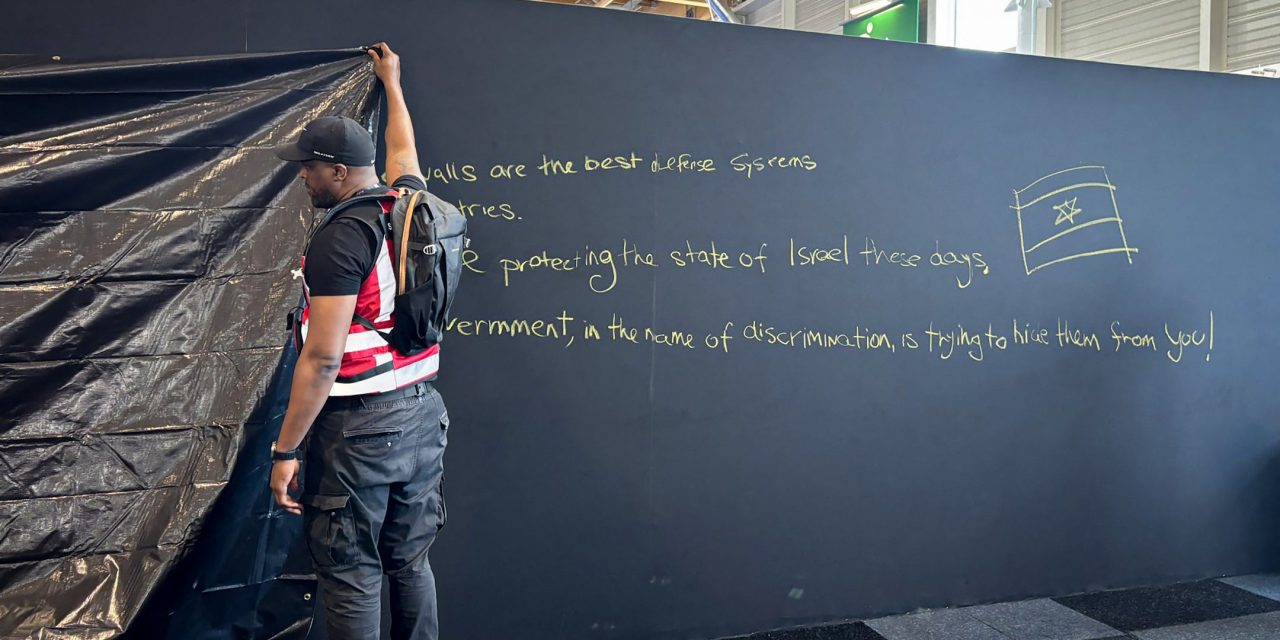 walls are the best defense Systems
tries.
protecting the state of Israel these days,
vernmment, in the name of discrimination, is trying to hide them from you!